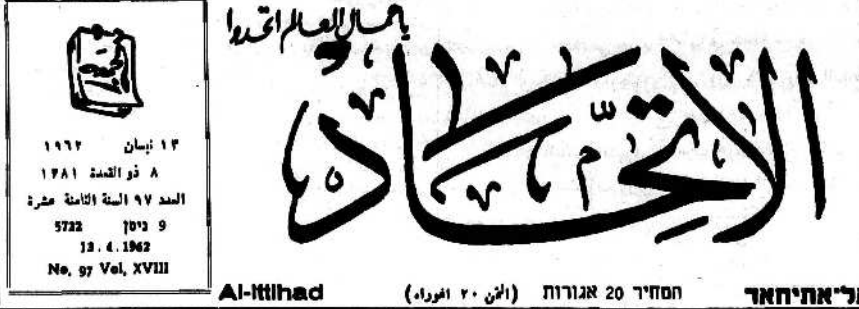 يا عمال العالم اتحدوا
الاتحاد
١٣ نيسان ١٩٦٢
٨ ذو القعدة ١٣٨١
العدد ٩٧ السنة الثامنة عشرة
9 ניסן 5722
13.4.1962
No, 97 Vol, XVIII
Al-Ittihad
(الثمن ٢٠ اغوراه) המחיר 20 אגורות
אל־אתיחאד